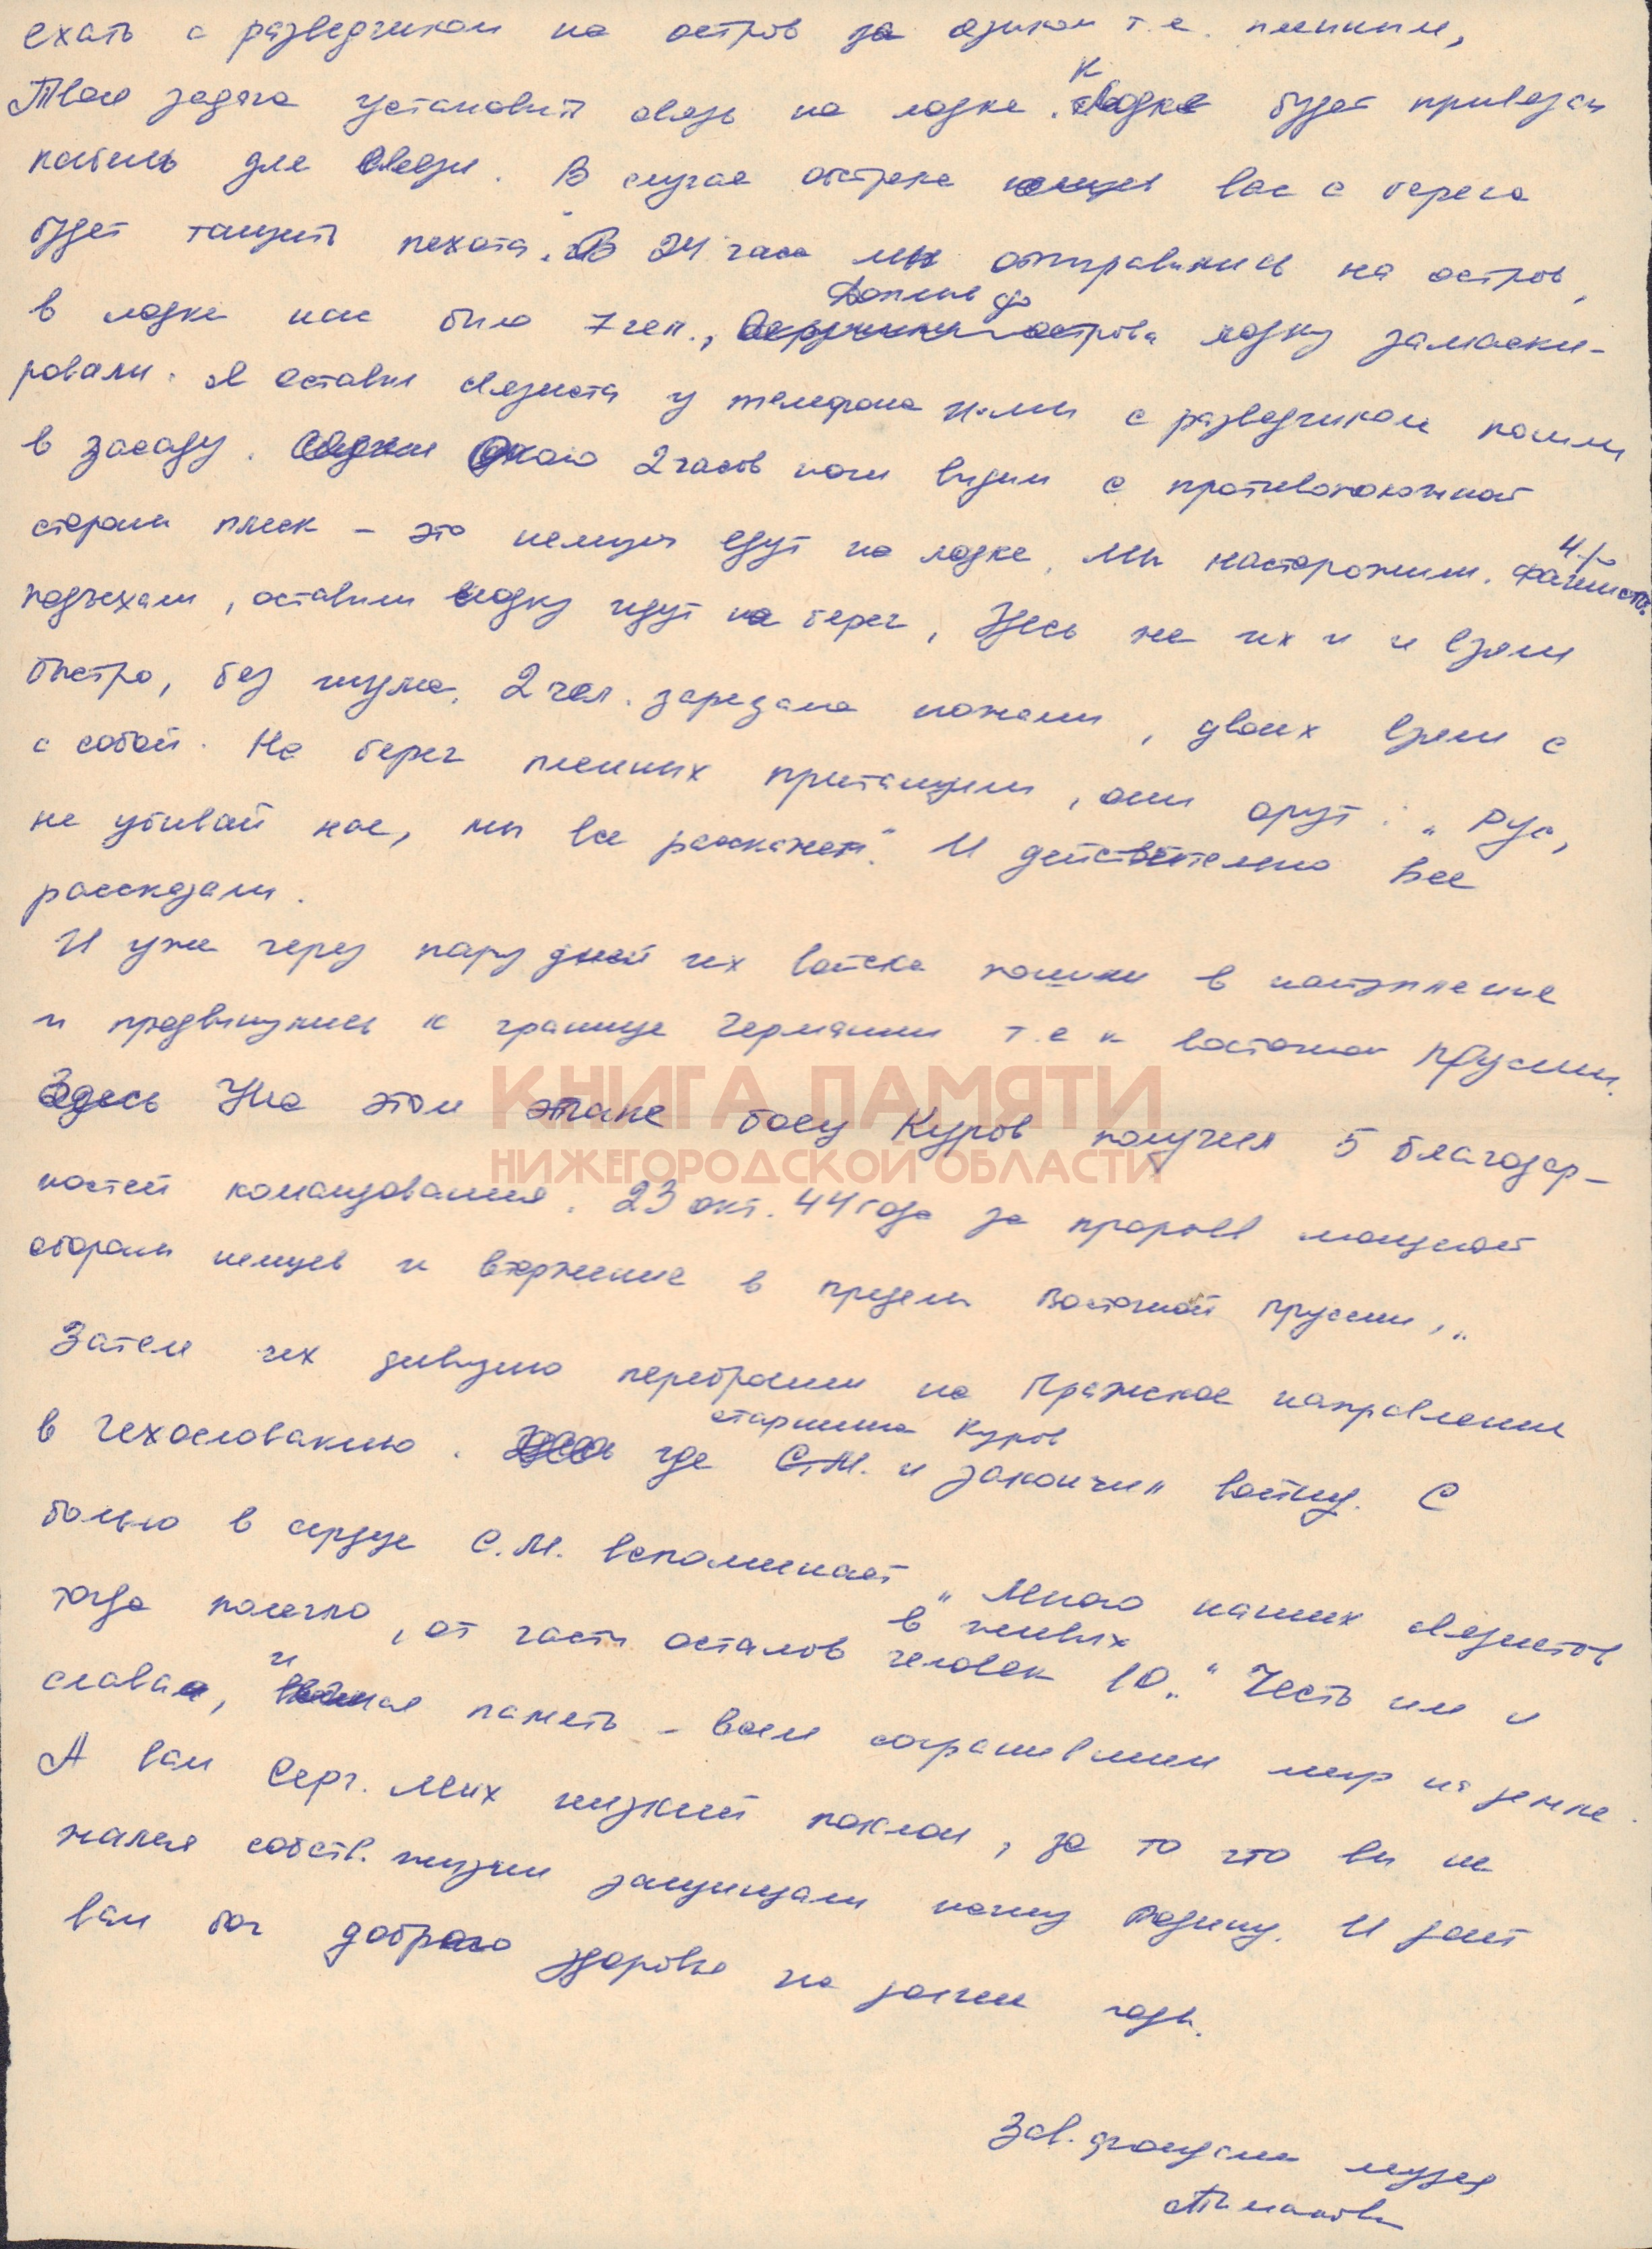 ехать с разведчиком на остров за языком т.е. пленным,
Твоя задача установить связь на лодке. К лодке будет привязан
кабель для связи. В случае обстрела вас с берега
будет тащить пехота. "В 24 часа мы отправились на остров,
в лодке нас было 7 чел., Доплыв до острова лодку замаски-
ровали. Я оставил связиста у телефона сами с разведчиком пошли
в засаду. Около 2 часов ночи видим с противоположной
стороны плеск - это немцы едут на лодке. Мы насторожили. 4-ро фашистов
подъехали, оставили лодку идут на берег, Здесь же их и и взяли
быстро, без шума. 2 чел. зарезали ножами, двоих взяли с
с собой. На берег пленных притащили, они орут: "Рус,
не убивай нас, мы все расскажем". И действительно все
рассказали.
И уже через пару дней их войска пошли в наступление
и продвинулись к границе Германии т.е к восточной Пруссии.
На этом этапе боец Куров получил 5 благодар-
ностей командования. 23 окт. 44 года за прорыв мощной
обороны немцев и вторжение в пределы Восточной Пруссии, "
Затем их дивизию перебросили на Пражское направление
в Чехословакию. где старшина Куров и закончил войну. С
болью в сердце С.М. вспоминает "Много наших связистов
тогда полегло, от части осталось в живых человек 10." Честь им и
слава, и вечная память - всем сохранившим мир на земле.
А вам Серг. Мих низкий поклон, за то что вы не
жалея собств. жизни защищали нашу Родину. И дай
вам бог доброго здоровья на долгие годы.
Зав. фондами музея